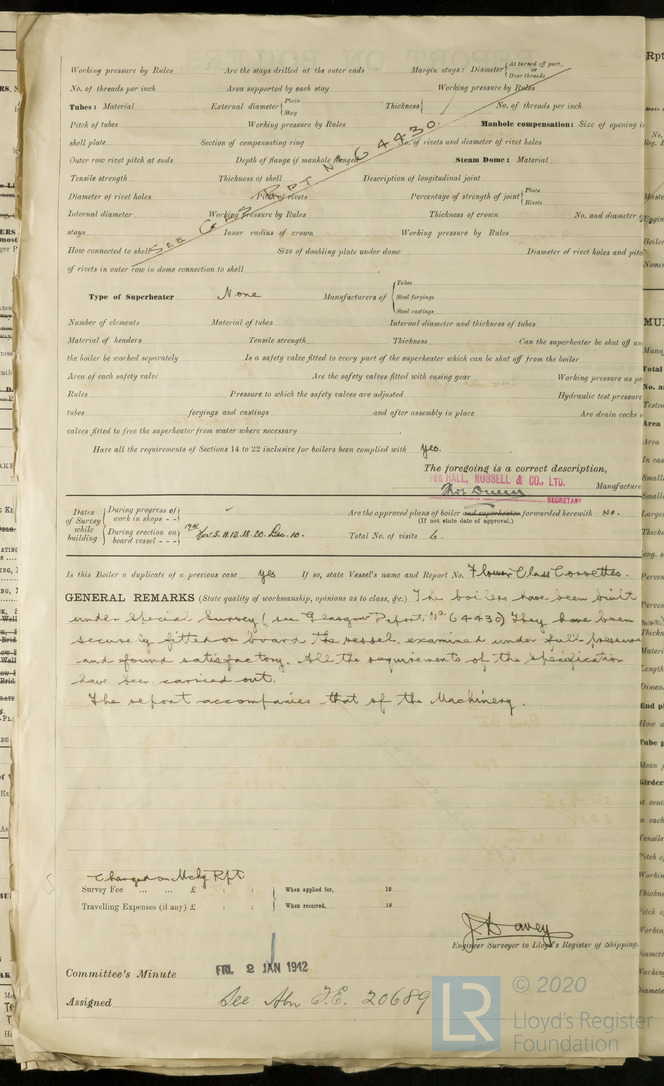 Working pressure by Rules Are the stays drilled at the outer ends Margin stays: Diameter { At turned off part, or Over threads
No. of threads per inch Area supported by each stay Working pressure by Rules
Tubes: Material External diameter { Plain Stay Thickness { No. of threads per inch
Pitch of tubes Working pressure by Rules Manhole compensation: Size of opening i
shell plate Section of compensating ring No. of rivets and diameter of rivet holes
Outer row rivet pitch at ends Depth of flange if manhole flanged Steam Dome: Material
Tensile strength Thickness of shell Description of longitudinal joint
Diameter of rivet holes Pitch of rivets Percentage of strength of joint { Plate Rivets
Internal diameter Working pressure by Rules Thickness of crown No. and diameter
stays Inner radius of crown Working pressure by Rules
How connected to shell Size of doubling plate under dome Diameter of rivet holes and pitc
of rivets in outer row in dome connection to shell
SEE RPT No 64430.
Type of Superheater None Manufacturers of { Tubes Steel forgings Steel castings
Number of elements Material of tubes Internal diameter and thickness of tubes
Material of headers Tensile strength Thickness Can the superheater be shut off an
the boiler be worked separately Is a safety valve fitted to every part of the superheater which can be shut off from the boiler
Area of each safety valve Are the safety valves fitted with easing gear Working pressure as pe
Rules Pressure to which the safety valves are adjusted Hydraulic test pressure
tubes forgings and castings and after assembly in place Are drain cocks o
valves fitted to free the superheater from water where necessary
Have all the requirements of Sections 14 to 22 inclusive for boilers been complied with yes.
The foregoing is a correct description,
FOR HALL, RUSSELL & CO., LTD.
Manufacture
SECRETARY
Dates of Survey while building { During progress of work in shops - - } Are the approved plans of boiler and superheater forwarded herewith No.
(If not state date of approval.)
{ During erection on board vessel - - - } 1941 Nov. 5. 11. 12. 18. 20. Dec. 10. Total No. of visits 6.
Is this Boiler a duplicate of a previous case yes If so, state Vessel's name and Report No. Flower Class Corvettes.
GENERAL REMARKS (State quality of workmanship, opinions as to class, &c.) The boilers have been built
under Special Survey (see Glasgow Report, No 64430) They have been
securely fitted on board the vessel, examined under full pressure
and found satisfactory. All the requirements of the specification
have been carried out.
The report accompanies that of the Machinery.
Charged on Mchy Rpt.
Survey Fee ... ... £ : : When applied for, 19
Travelling Expenses (if any) £ : : When received, 19
J Davey
Engineer Surveyor to Lloyd's Register of Shipping.
Committee's Minute FRI. 2 JAN 1942
Assigned See Abn F.E. 20689
LR © 2020
Lloyd's Register
Foundation